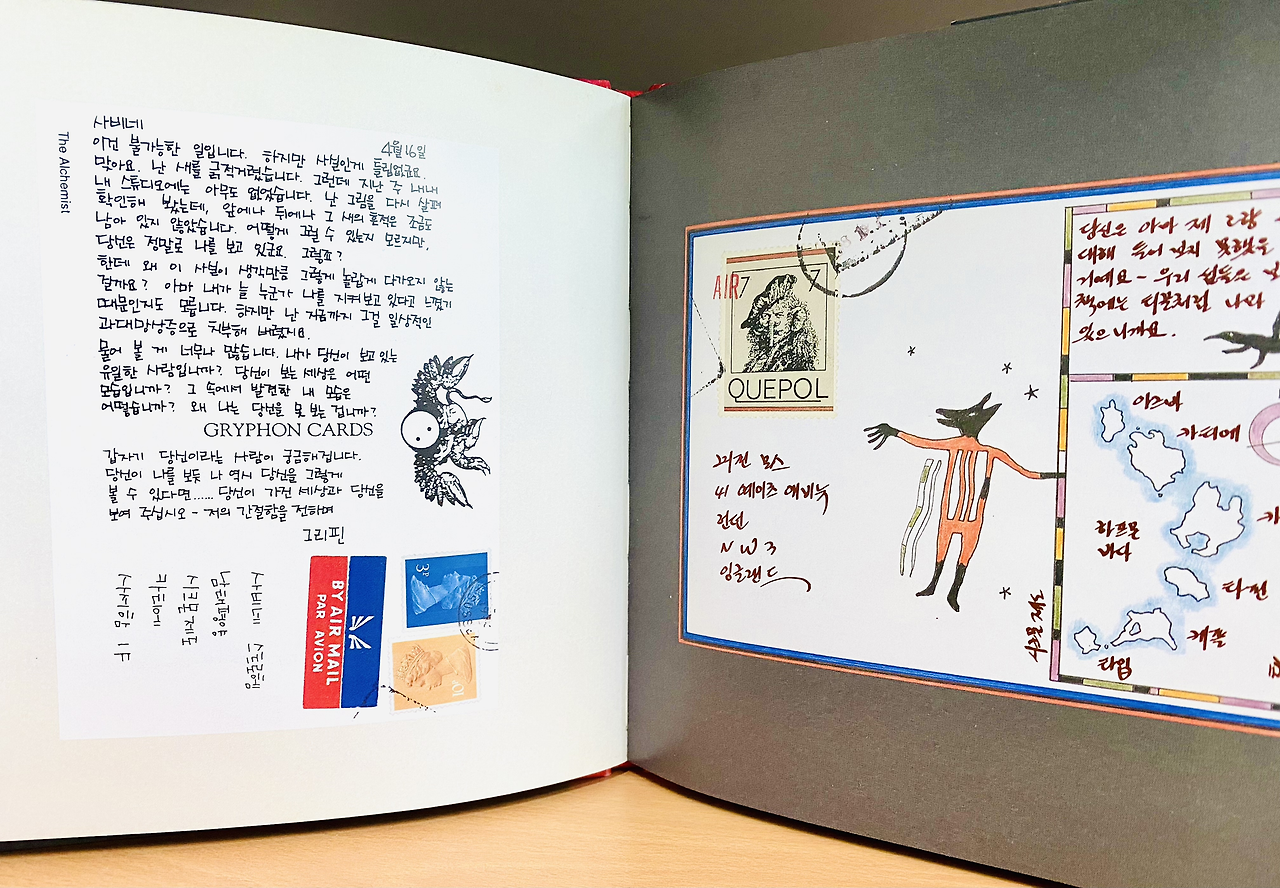 The Alchemist
사비네
4월 16일
이건 불가능한 일입니다. 하지만 사실인게 틀림없군요.
맞아요. 난 새를 긁적거렸습니다. 그런데 지난 주 내내
내 스튜디오에는 아무도 없었습니다. 난 그림을 다시 살펴
확인해 봤는데, 앞에나 뒤에나 그 새의 흔적은 조금도
남아 있지 않았습니다. 어떻게 그럴 수 있는지 모르지만,
당신은 정말로 나를 보고 있군요. 그렇죠?
한데 왜 이 사실이 생각만큼 그렇게 놀랍게 다가오지 않는
걸까요? 아마 내가 늘 누군가 나를 지켜보고 있다고 느꼈기
때문인지도 모릅니다. 하지만 난 지금까지 그걸 일상적인
과대망상증으로 치부해 버렸지요.
물어 볼 게 너무나 많습니다. 내가 당신이 보고 있는
유일한 사람입니까? 당신이 보는 세상은 어떤
모습입니까? 그 속에서 발견한 내 모습은
어떻습니까? 왜 나는 당신을 못 보는 겁니까?
GRYPHON CARDS
갑자기 당신이라는 사람이 궁금해집니다.
당신이 나를 보듯 나 역시 당신을 그렇게
볼 수 있다면...... 당신이 가진 세상과 당신을
보여 주십시오 - 저의 간절함을 전하며
그리핀
사비네 스트로헴
남태평양
시크몬 제도
카티에
BY AIR MAIL
PAR AVION
3P
10P
AIR
7 7
QUEPOL
그리핀 모스
41 예이츠 애비뉴
런던
NW3
잉글랜드
당신은 아마 제 고향
대해 들어 보지 못했을
거예요- 우리 섬들은
책에는 티끌처럼 나와
있으니까요.
아르바
카티에
하프문
바다
타펀
케플
타임